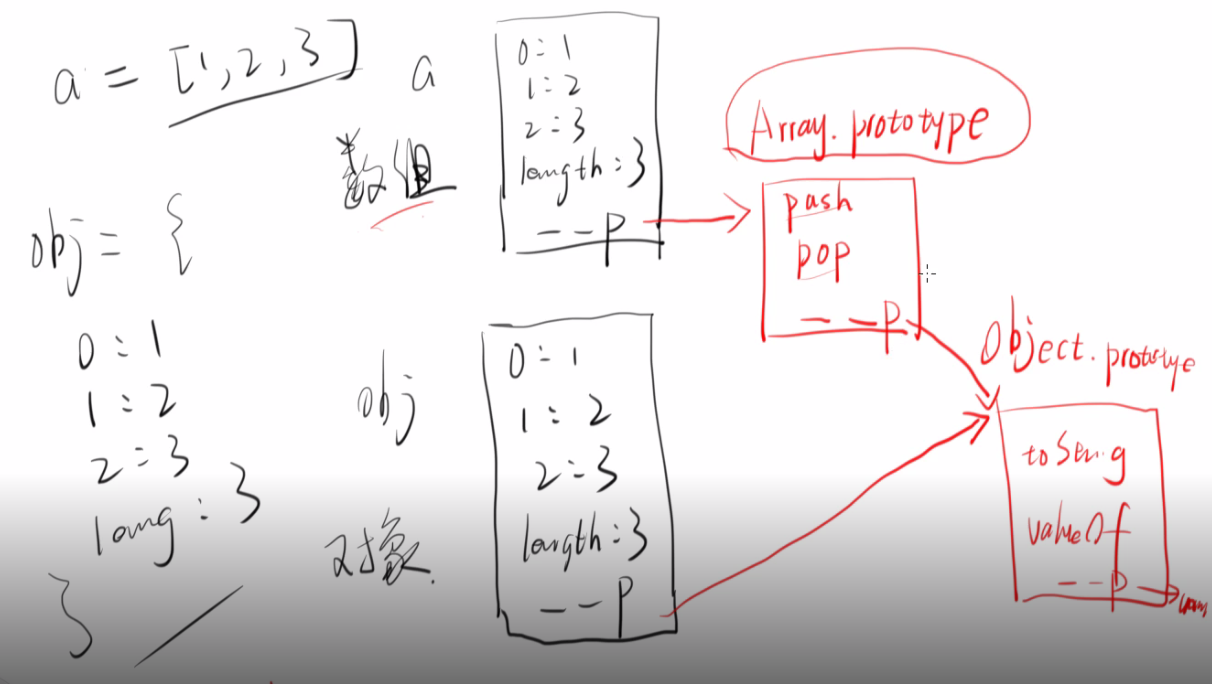 a = [1, 2, 3]
obj = {
0 : 1
1 : 2
2 : 3
long : 3
}
a
数组
0 : 1
1 : 2
2 : 3
length : 3
__p
obj
对象
0 : 1
1 : 2
2 : 3
length : 3
__p
Array.prototype
push
pop
__p
Object.prototype
valueOf
__p